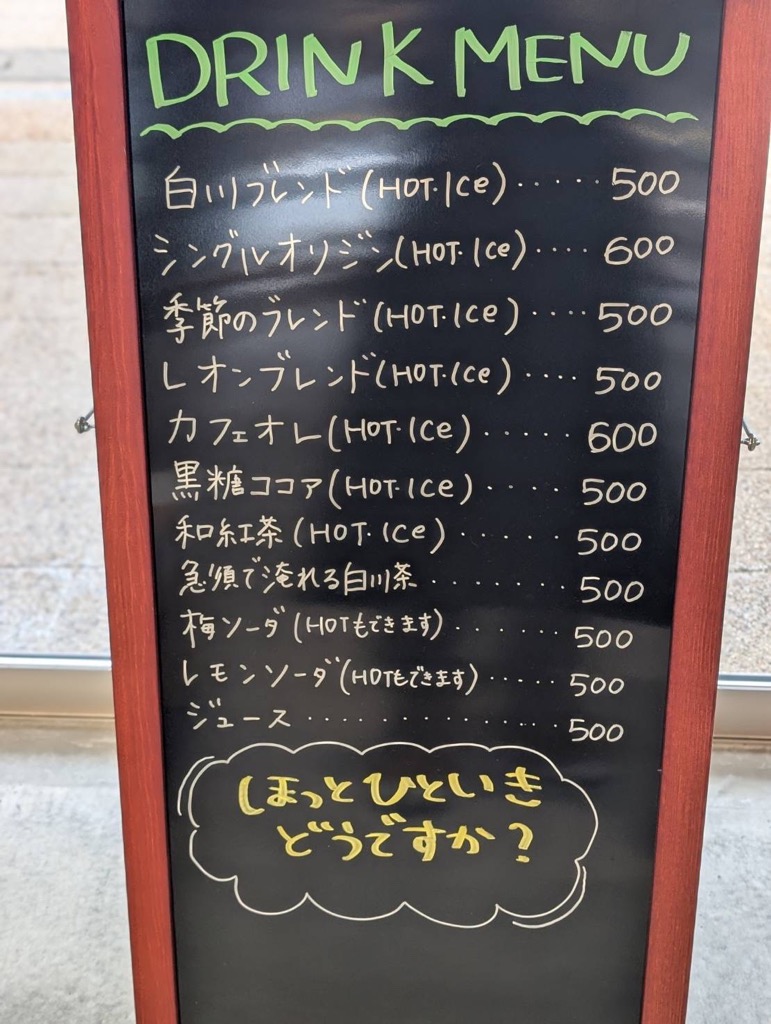 DRINK MENU
白川ブレンド(HOT・Ice)‥‥‥500
シングルオリジン(HOT・Ice)‥‥600
季節のブレンド(HOT・Ice)‥‥500
レオンブレンド(HOT・Ice)‥‥500
カフェオレ(HOT・Ice)‥‥‥600
黒糖ココア(HOT・Ice)‥‥500
和紅茶(HOT・Ice)‥‥‥500
急須で淹れる白川茶‥‥‥‥500
梅ソーダ(HOTもできます)‥‥‥500
レモンソーダ(HOTもできます)‥‥‥500
ジュース‥‥‥‥‥‥‥500
ほっとひといき
どうですか?